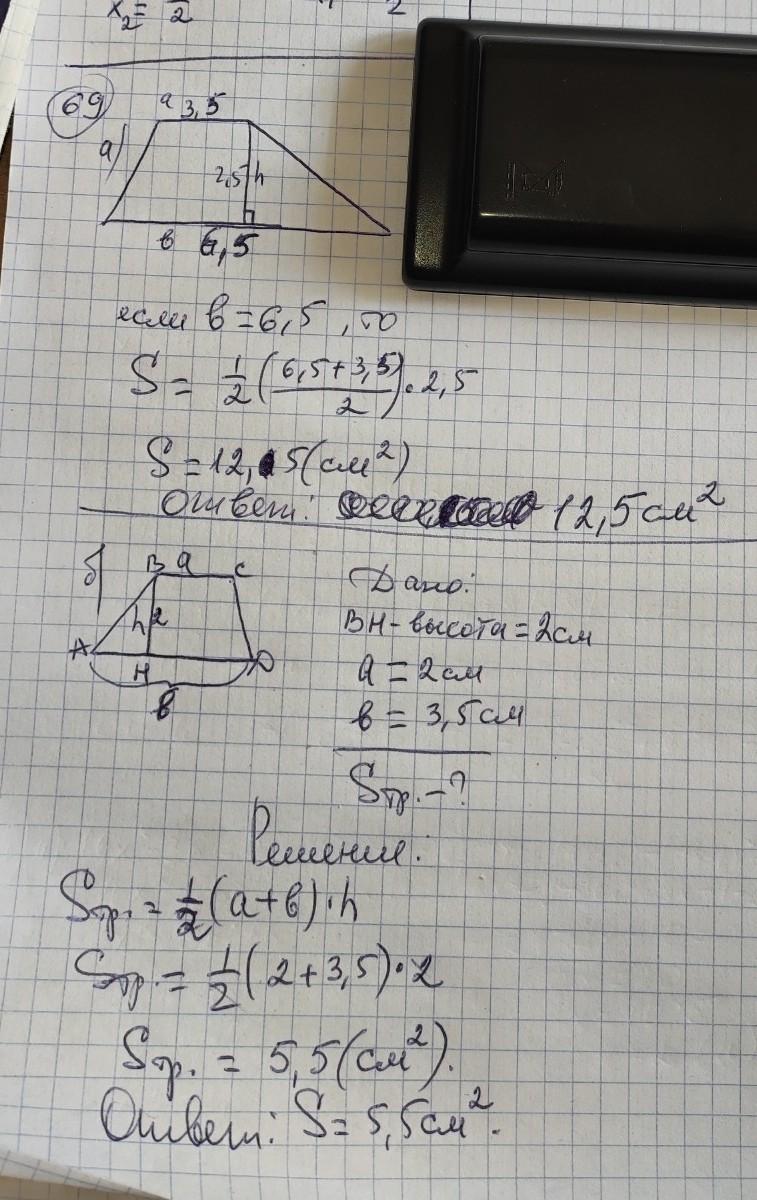 x₂= 2 2
69
a 3,5
а)
2,5 h
в 6,5
если в = 6,5, то
S = 1/2 ((6,5+3,5)/2) · 2,5
S = 12,5 (см²)
Ответ: 12,5 см²
б) B a C
h 2
A H D
в
Дано:
BH - высота = 2 см
a = 2 см
в = 3,5 см
Sтр. - ?
Решение:
Sтр. = 1/2 (a + в) · h
Sтр. = 1/2 (2 + 3,5) · 2
Sтр. = 5,5 (см²).
Ответ: S = 5,5 см².